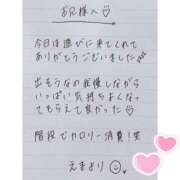 お兄様へ♡
今日は遊びに来てくれて
ありがとうございました
出そうなの我慢しながら
いっぱい気持ちよくなっ
てもらえて良かった♡
階段でカロリー消費!笑
えまより☺